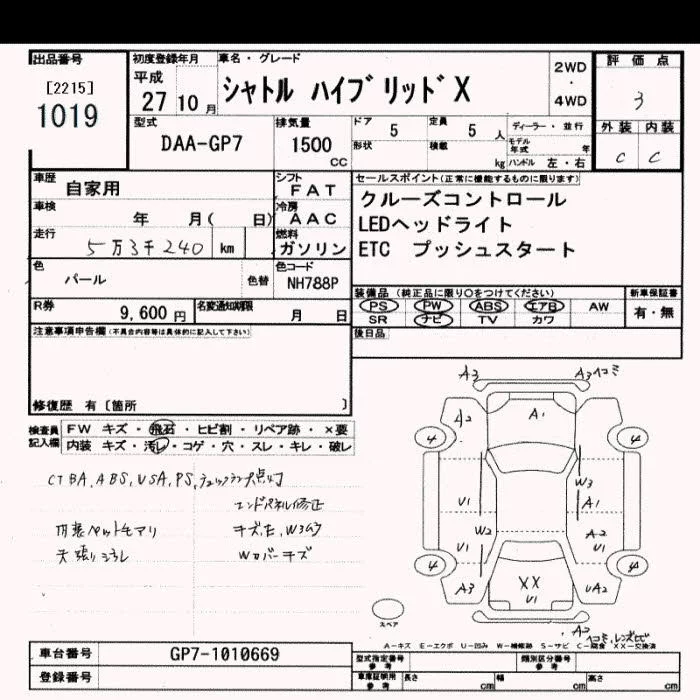 出品番号
[2215]
1019
初度登録年月
平成
27年10月
車名・グレード
シャトル ハイブリッド X
2WD
・
4WD
評価点
3
外装 内装
C C
型式
DAA-GP7
排気量
1500
CC
ドア
5
定員
5 人
形状
積載
kg
ディーラー・並行
モデル年式 年
ハンドル 左・右
車歴
自家用
シフト
FAT
車検
年 月( 日)
冷房
AAC
走行
5万3千240 km
燃料
ガソリン
色
パール
色替
色コード
NH788P
R券
9,600 円
名変通知期限
月 日
セールスポイント(正常に機能するものに限ります)
クルーズコントロール
LEDヘッドライト
ETC プッシュスタート
装備品(純正品に限り○をつけてください)
新車保証書
PS PW ABS エアB AW
SR ナビ TV カワ
有・無
後日品
注意事項申告欄(不具合内容等は具体的に記入して下さい)
修復歴 有〔箇所 〕
検査員
記入欄
FW キズ・飛石・ヒビ割・リペア跡・×要
内装 キズ・汚レ・コゲ・穴・スレ・キレ・破レ
CTBA, ABS, VSA, PS,
エンドパネル修正
内装ペット毛アリ
天張りヨゴレ
Wカバーキズ
A3
A3ヘコミ
A2
A1
4
4
W3
U1
A1
W2
A2
U1
U1
4
4
A3
XX
U1
UA2
スペア
A2
A-キズ E-エクボ U-凹み W-補修跡 S-サビ C-腐食 XX-交換済
車台番号
GP7-1010669
登録番号
型式指定番号
参考
類別区分番号
参考
車庫証明用
参考
長さ cm
幅 cm
高さ cm